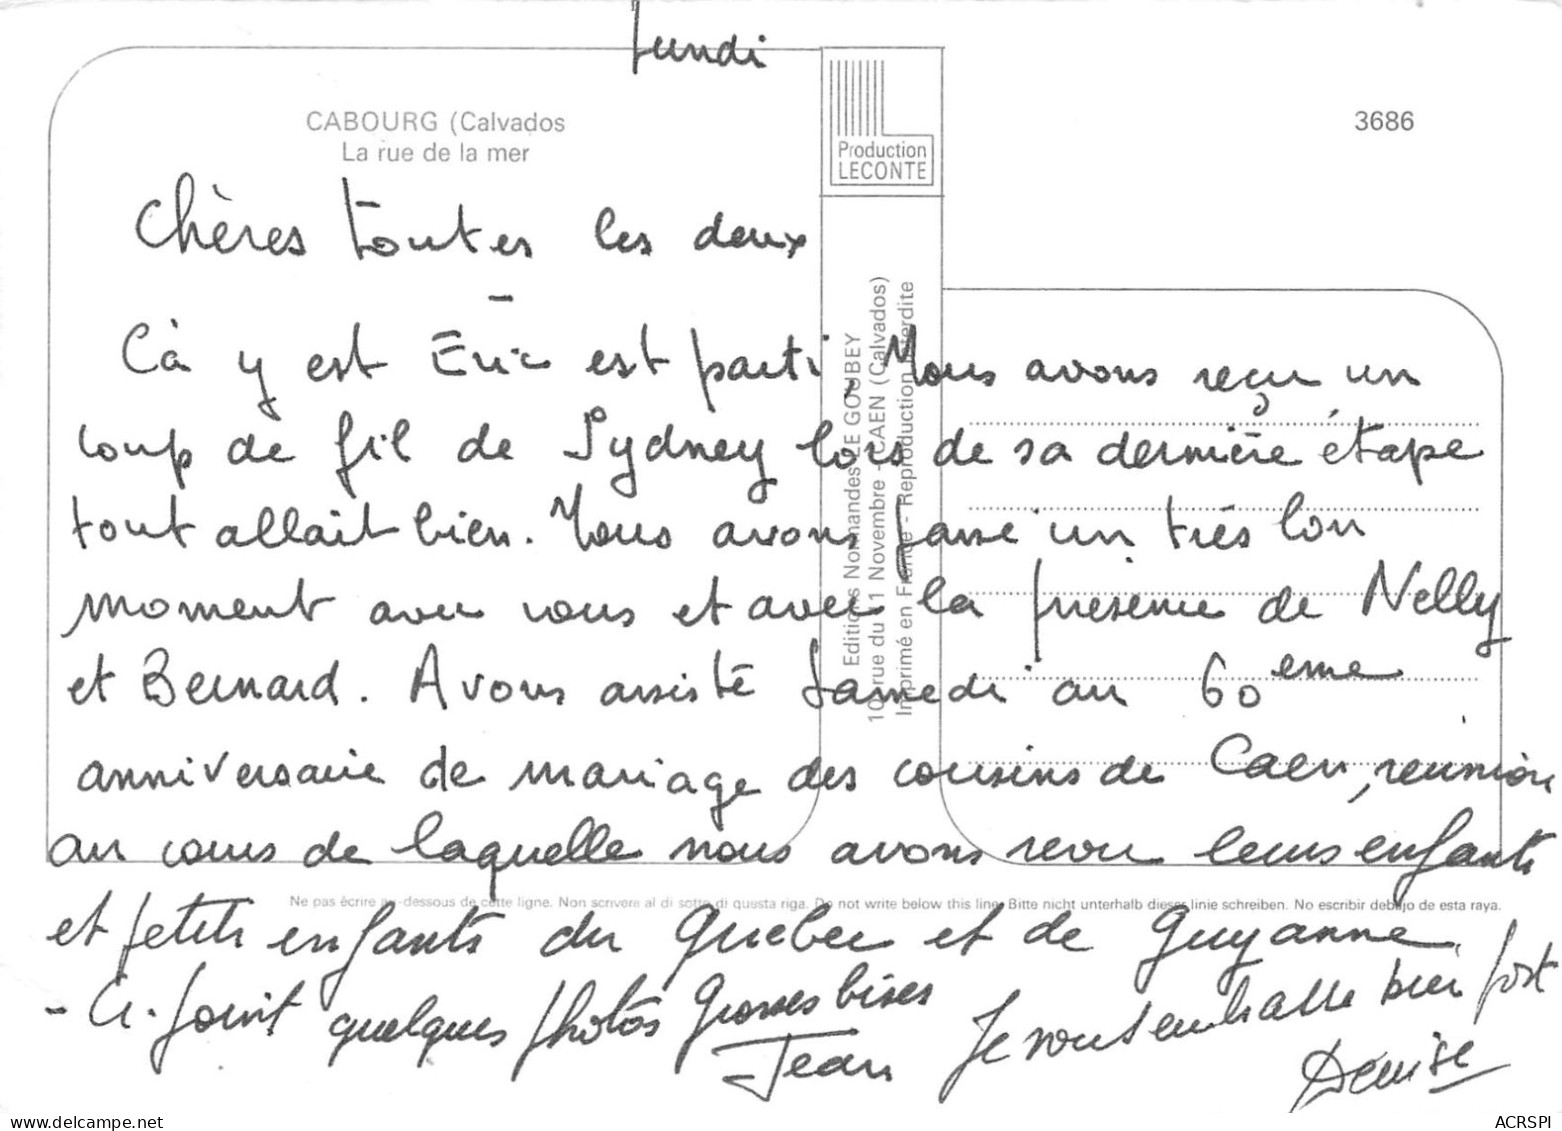 lundi
CABOURG (Calvados
La rue de la mer
Production
LECONTE
3686
Chères toutes les deux
Cà y est Eric est parti, Nous avons reçu un
coup de fil de Sydney lors de sa dernière étape
tout allait bien. Nous avons passé un très bon
moment avec vous et avec la présence de Nelly
et Bernard. Avons assisté Samedi au 60eme
anniversaire de mariage des cousins de Caen, reunion
au cours de laquelle nous avons revu leurs enfants
et petits enfants du Quebec et de Guyanne
- Ci-joint quelques photos Grosses bises
Jean
Je vous embrasse bien fort
Denise
Editions Normandes LE GOUBEY
10 rue du 11 Novembre - CAEN (Calvados)
Imprimé en France - Reproduction interdite
Ne pas écrire au-dessous de cette ligne. Non scrivere al di sotto di questa riga. Do not write below this line. Bitte nicht unterhalb dieser linie schreiben. No escribir debajo de esta raya.
delcampe.net
ACRSPI